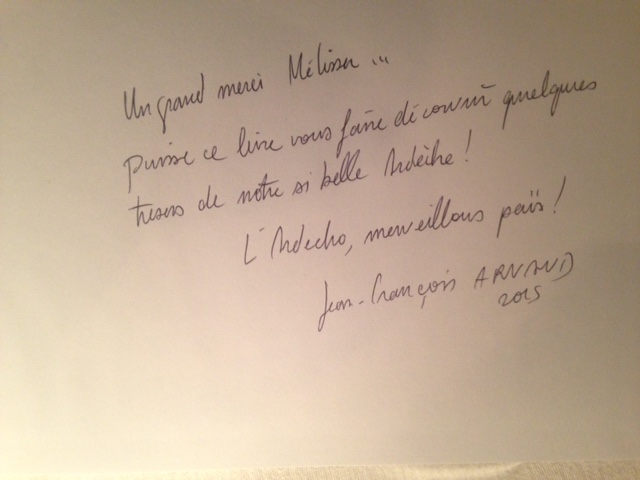 Un grand merci Mélissa ...
Puisse ce livre vous faire découvrir quelques
tresors de notre si belle Ardèche !
L'Ardecho, merveillous païs !
Jean-François ARNAUD
2015